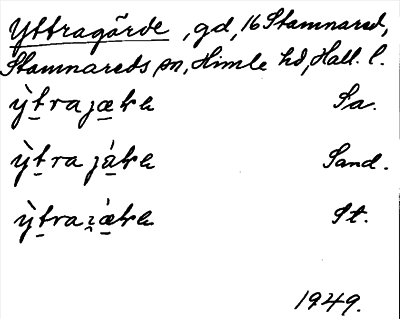 Yttragärde, gd, 16 Stamnared,
Stamnareds sn, Himle hd, Hall. l.
ỳt̠rajæ̠tɐ Sa.
ỳt̠ra já̠tɐ Sand.
ỳt̠raʐǽ̠tɐ St.
1949.